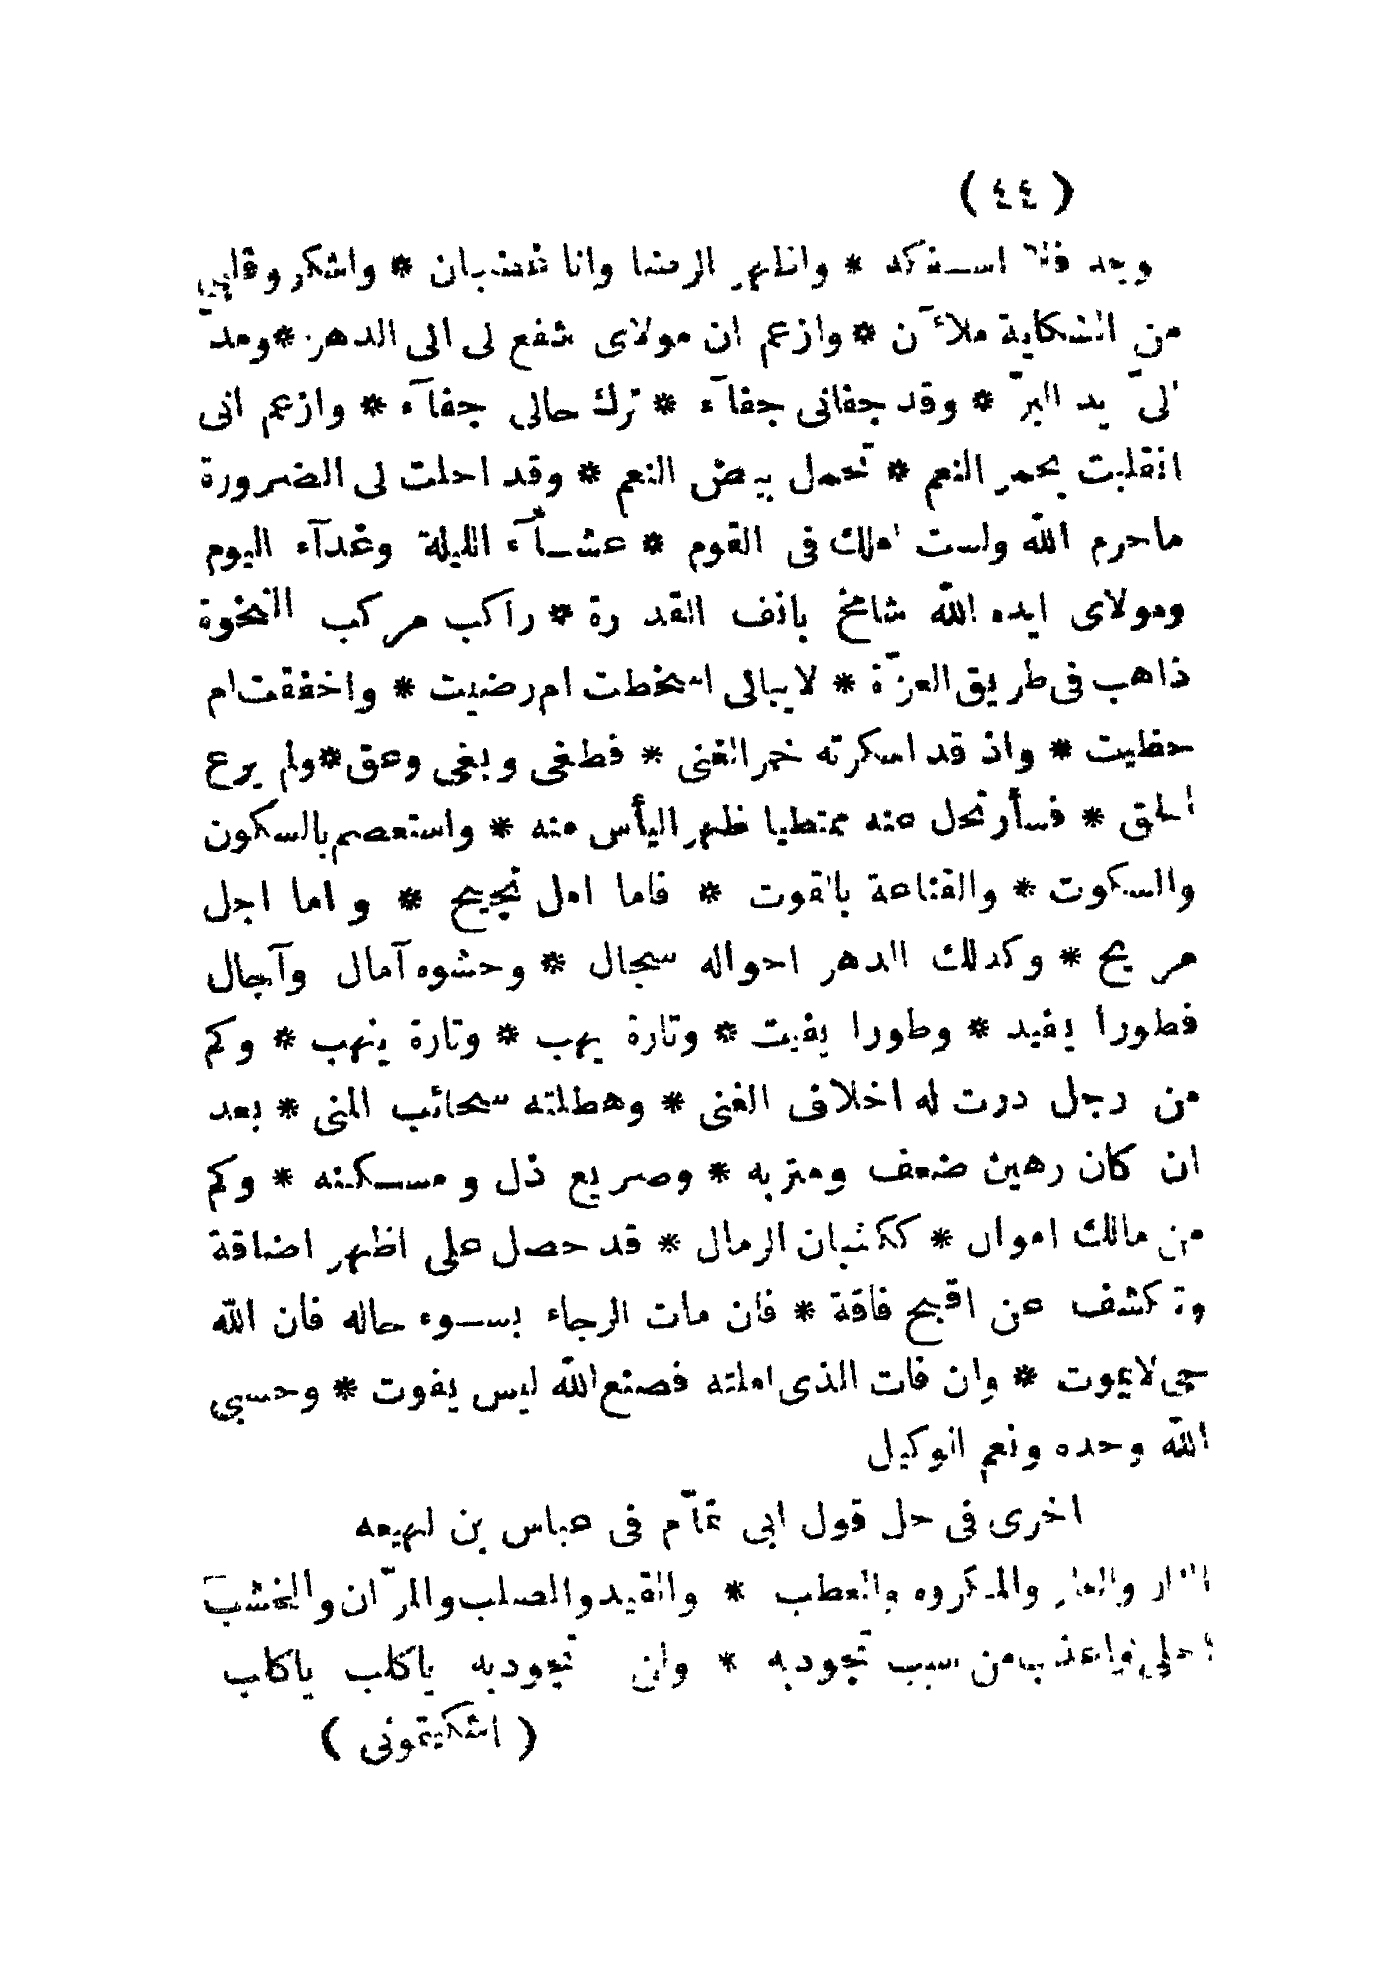 ( ٤٤ )
وجد فلا استدركه * واظهر الرضا وانا غضبان * واشكر وقلبي
من الشكاية ملآن * وازعم ان مولاى شفع لى الى الدهر * ومدّ
الىّ يد البرّ * وقد جفانى جفآء * ترك حالى جفآء * وازعم انى
انقلبت بحمر النعم * تحمل بيض النعم * وقد احلت لى الضرورة
ماحرم الله ولست املك فى القوم * عشآء الليلة وغدآء اليوم
ومولاى ايده الله شامخ بانف القدرة * راكب مركب النخوة
ذاهب فى طريق العزّة * لايبالى اسخطت ام رضيت * واخفقت ام
حظيت * واذ قد اسكرته خمر الغنى * فطغى وبغى وعق * ولم يرع
الحق * فسأرتحل عنه ممتطيا ظهر اليأس منه * واستعصم بالسكون
والسكوت * والقناعة بالقوت * فاما امل نجيح * واما اجل
مريح * وكذلك الدهر احواله سجال * وحشوه آمال وآجال
فطورا يفيد * وطورا يفيت * وتارة يهب * وتارة ينهب * وكم
من رجل درت له اخلاف الغنى * وهطلته سحائب المنى * بعد
ان كان رهين ضعف ومتربه * وصريع ذل ومسكنه * وكم
من مالك اموال * ككثبان الرمال * قد حصل على اظهر اضاقة
وتكشف عن اقبح فاقة * فان مات الرجاء بسوء حاله فان الله
حى لايموت * وان فات الذى املته فصنع الله ليس يفوت * وحسبي
الله وحده ونعم الوكيل
اخرى فى حل قول ابى تمّام فى عباس بن لهيعه
النار والعار والمكروه والعطب * والقيد والصلب والمرّان والخشب
احلى واعذب من سيب تجود به * ولن تجود به ياكلب ياكلب
( اشكيتمونى )